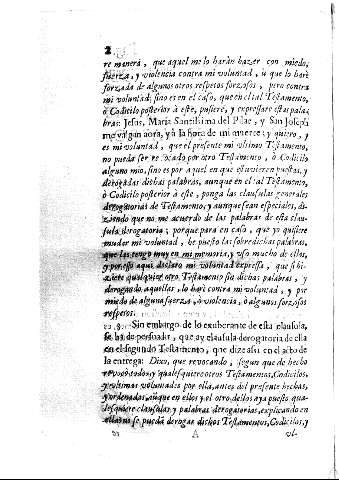 2
re manera, que aquel me lo haràn hazer con miedo,
fuerza, y violencia contra mi voluntad, ù que lo harè
forzada de algunos otros respetos forzosos, pero contra
mi voluntad; sino es en el caso, que en el tal Testamento,
ò Codicilo posterior à este, pusiere, y expressare estas pala-
bras: Jesus, Maria Santissima del Pilar, y San Joseph
me valgan aora, y à la hora de mi muerte; y quiero, y
es mi voluntad, que el presente mi vltimo Testamento,
no pueda ser revocado por otro Testamento, ò Codicilo
alguno mio, sino es por aquel en que estuvieren puestas, y
derogadas dichas palabras, aunque en el tal Testamento,
ò Codicilo posterior à este, ponga las clausulas generales
derogatorias de Testamento, y aunque sean especiales, di-
ziendo que no me acuerdo de las palabras de esta clau-
sula derogatoria; porque para en caso, que yo quisiere
mudar mi voluntad, he puesto las sobredichas palabras,
que las tengo muy en mi memoria, y vso mucho de ellas,
y por esso aqui declaro mi voluntad expressa, que si hi-
ziere qualquier otro Testamento sin dichas palabras, y
derogando aquellas, lo harè contra mi voluntad, y por
miedo de alguna fuerza, ò violencia, ò algunos forzosos
respetos.
3. Sin embargo de lo exuberante de esta clausula,
se ha de persuadir, que ay clausula derogatoria de ella
en el segundo Testamento, que dize assi en el acto de
la entrega: Dixo, que revocando, segun que de hecho
revocò todos, y qualesquiere otros Testamentos, Codicilos,
y vltimas voluntades por ella, antes del presente hechas,
y ordenadas, aunque en ellos y el otro, dellos aya puesto qua-
lesquiere clausulas, y palabras derogatorias, explicando en
ellas no se pueda derogar dichos Testamentos, Codicilos, y
A vl-